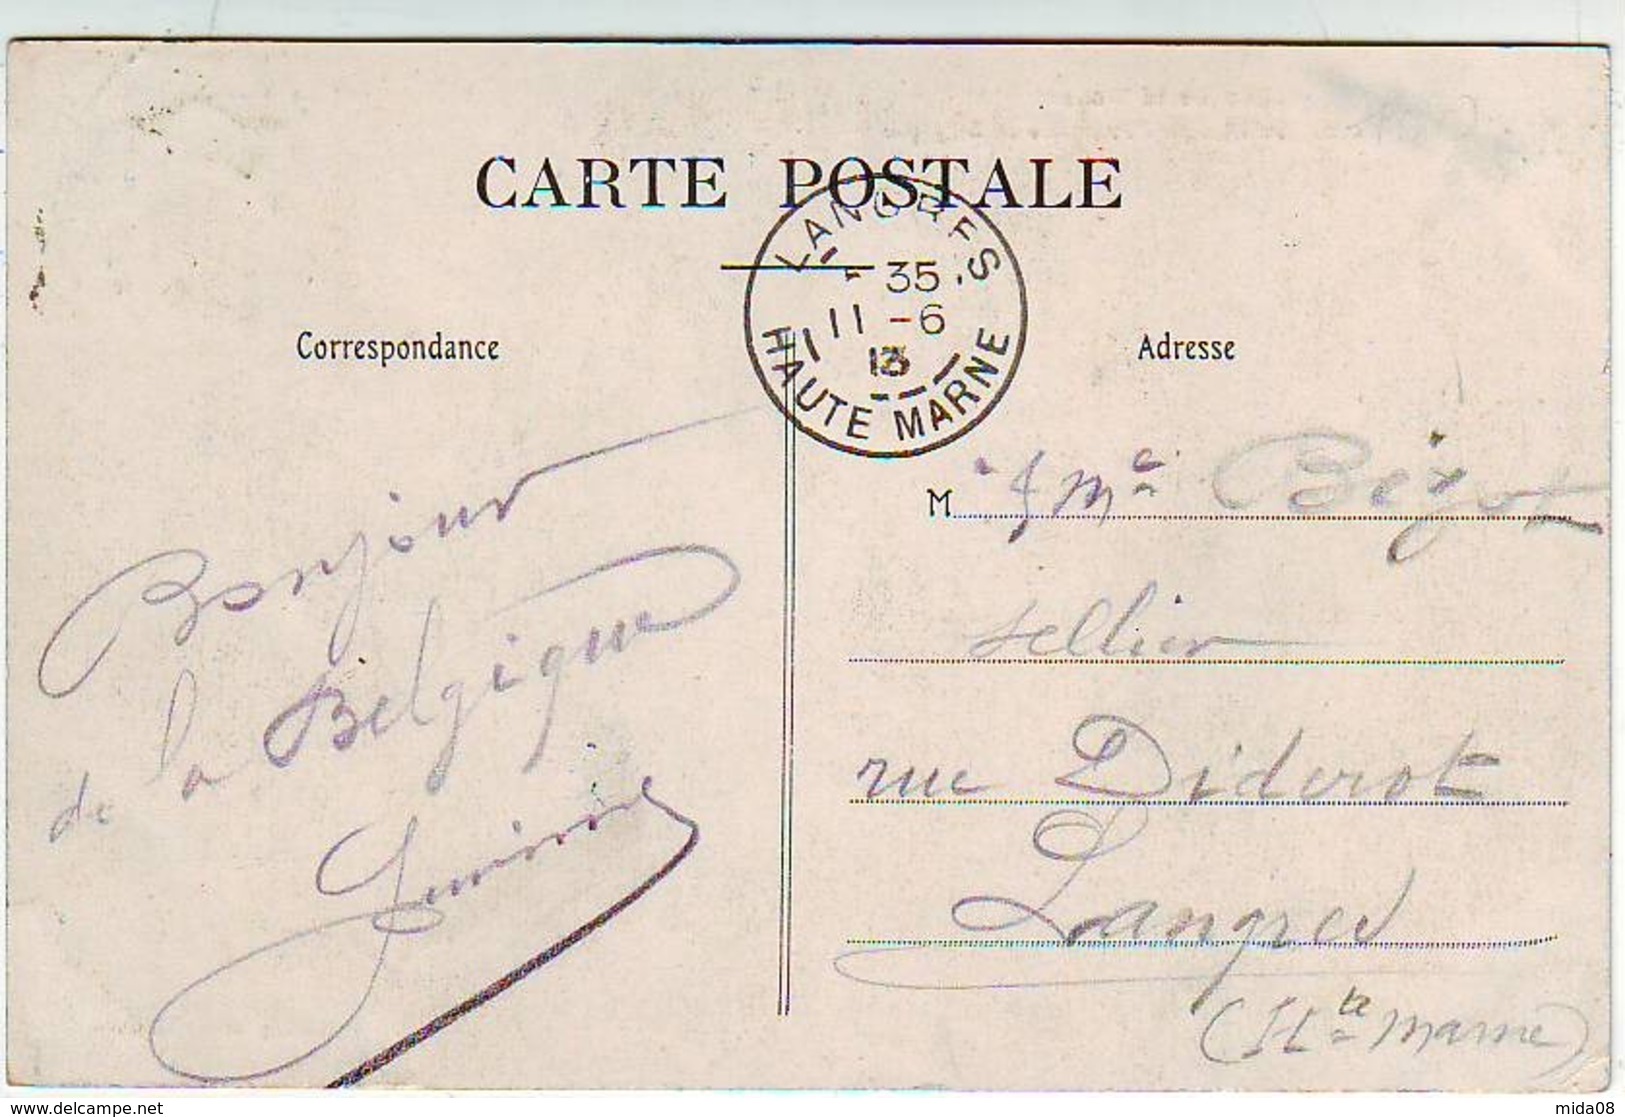 CARTE POSTALE
LANGRES
35
11 -6
13
HAUTE MARNE
Correspondance
Adresse
Bonjour
de la Belgique
M & Mme Bézot
sellier
rue Diderot
Langres
(Hte Marne)
www.delcampe.net
mida08